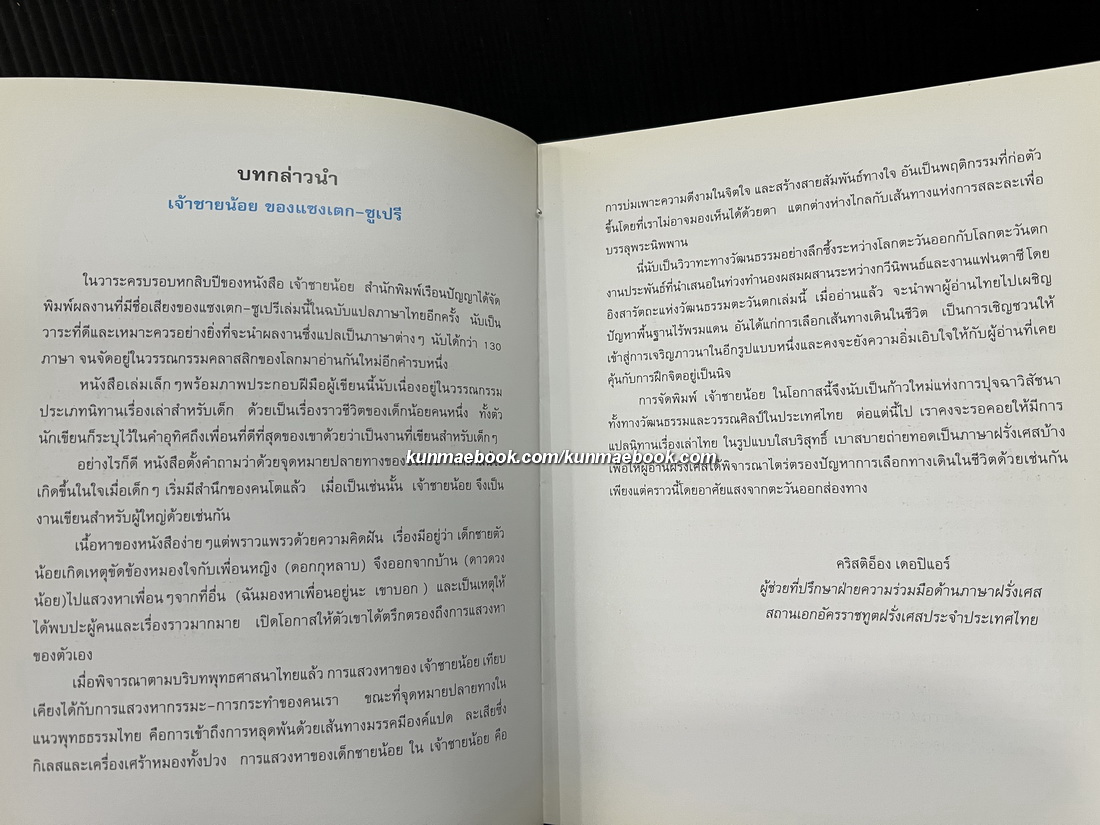 บทกล่าวนำ
เจ้าชายน้อย ของแซงเตก-ซูเปรี
ในวาระครบรอบหกสิบปีของหนังสือ เจ้าชายน้อย สำนักพิมพ์เรือนปัญญาได้จัด
พิมพ์ผลงานที่มีชื่อเสียงของแซงเตก-ซูเปรีเล่มนี้ในฉบับแปลภาษาไทยอีกครั้ง นับเป็น
วาระที่ดีและเหมาะควรอย่างยิ่งที่จะนำผลงานซึ่งแปลเป็นภาษาต่างๆ นับได้กว่า 130
ภาษา จนจัดอยู่ในวรรณกรรมคลาสสิกของโลกมาอ่านกันใหม่อีกคำรบหนึ่ง
หนังสือเล่มเล็กๆพร้อมภาพประกอบฝีมือผู้เขียนนี้นับเนื่องอยู่ในวรรณกรรม
ประเภทนิทานเรื่องเล่าสำหรับเด็ก ด้วยเป็นเรื่องราวชีวิตของเด็กน้อยคนหนึ่ง ทั้งตัว
นักเขียนก็ระบุไว้ในคำอุทิศถึงเพื่อนที่ดีที่สุดของเขาด้วยว่าเป็นงานที่เขียนสำหรับเด็กๆ
อย่างไรก็ดี หนังสือตั้งคำถามว่าด้วยจุดหมายปลายทางของ
เกิดขึ้นในใจเมื่อเด็กๆ เริ่มมีสำนึกของคนโตแล้ว เมื่อเป็นเช่นนั้น เจ้าชายน้อย จึงเป็น
งานเขียนสำหรับผู้ใหญ่ด้วยเช่นกัน
เนื้อหาของหนังสือง่ายๆแต่พราวแพรวด้วยความคิดฝัน เรื่องมีอยู่ว่า เด็กชายตัว
น้อยเกิดเหตุขัดข้องหมองใจกับเพื่อนหญิง (ดอกกุหลาบ) จึงออกจากบ้าน (ดาวดวง
น้อย)ไปแสวงหาเพื่อนๆจากที่อื่น (ฉันมองหาเพื่อนอยู่นะ เขาบอก) และเป็นเหตุให้
ได้พบปะผู้คนและเรื่องราวมากมาย เปิดโอกาสให้ตัวเขาได้ตรึกตรองถึงการแสวงหา
ของตัวเอง
เมื่อพิจารณาตามบริบทพุทธศาสนาไทยแล้ว การแสวงหาของ เจ้าชายน้อย เทียบ
เคียงได้กับการแสวงหากรรมะ-การกระทำของคนเรา ขณะที่จุดหมายปลายทางใน
แนวพุทธธรรมไทย คือการเข้าถึงการหลุดพ้นด้วยเส้นทางมรรคมีองค์แปด ละเสียซึ่ง
กิเลสและเครื่องเศร้าหมองทั้งปวง การแสวงหาของเด็กชายน้อย ใน เจ้าชายน้อย คือ
การบ่มเพาะความดีงามในจิตใจ และสร้างสายสัมพันธ์ทางใจ อันเป็นพฤติกรรมที่ก่อตัว
ขึ้นโดยที่เราไม่อาจมองเห็นได้ด้วยตา แตกต่างห่างไกลกับเส้นทางแห่งการสละละเพื่อ
บรรลุพระนิพพาน
นี่นับเป็นวิวาทะทางวัฒนธรรมอย่างลึกซึ้งระหว่างโลกตะวันออกกับโลกตะวันตก
งานประพันธ์ที่นำเสนอในท่วงทำนองผสมผสานระหว่างกวีนิพนธ์และงานแฟนตาซี โดย
อิงสารัตถะแห่งวัฒนธรรมตะวันตกเล่มนี้ เมื่ออ่านแล้ว จะนำพาผู้อ่านไทยไปเผชิญ
ปัญหาพื้นฐานไร้พรมแดน อันได้แก่การเลือกเส้นทางเดินในชีวิต เป็นการเชิญชวนให้
เข้าสู่การเจริญภาวนาในอีกรูปแบบหนึ่งและคงจะยังความอิ่มเอิบใจให้กับผู้อ่านที่เคย
คุ้นกับการฝึกจิตอยู่เป็นนิจ
การจัดพิมพ์ เจ้าชายน้อย ในโอกาสนี้จึงนับเป็นก้าวใหม่แห่งการปุจฉาวิสัชนา
ทั้งทางวัฒนธรรมและวรรณศิลป์ในประเทศไทย ต่อแต่นี้ไป เราคงจะรอคอยให้มีการ
แปลนิทานเรื่องเล่าไทย ในรูปแบบใสบริสุทธิ์ เบาสบายถ่ายทอดเป็นภาษาฝรั่งเศสบ้าง
kunmaebook.com/kunmaebook.com
เพื่อให้ผู้อ่านฝรั่งเศสได้พิจารณาไตร่ตรองปัญหาการเลือกทางเดินในชีวิตด้วยเช่นกัน
เพียงแต่คราวนี้โดยอาศัยแสงจากตะวันออกส่องทาง
คริสติอ็อง เดอปิแอร์
ผู้ช่วยที่ปรึกษาฝ่ายความร่วมมือด้านภาษาฝรั่งเศส
สถานเอกอัครราชทูตฝรั่งเศสประจำประเทศไทย